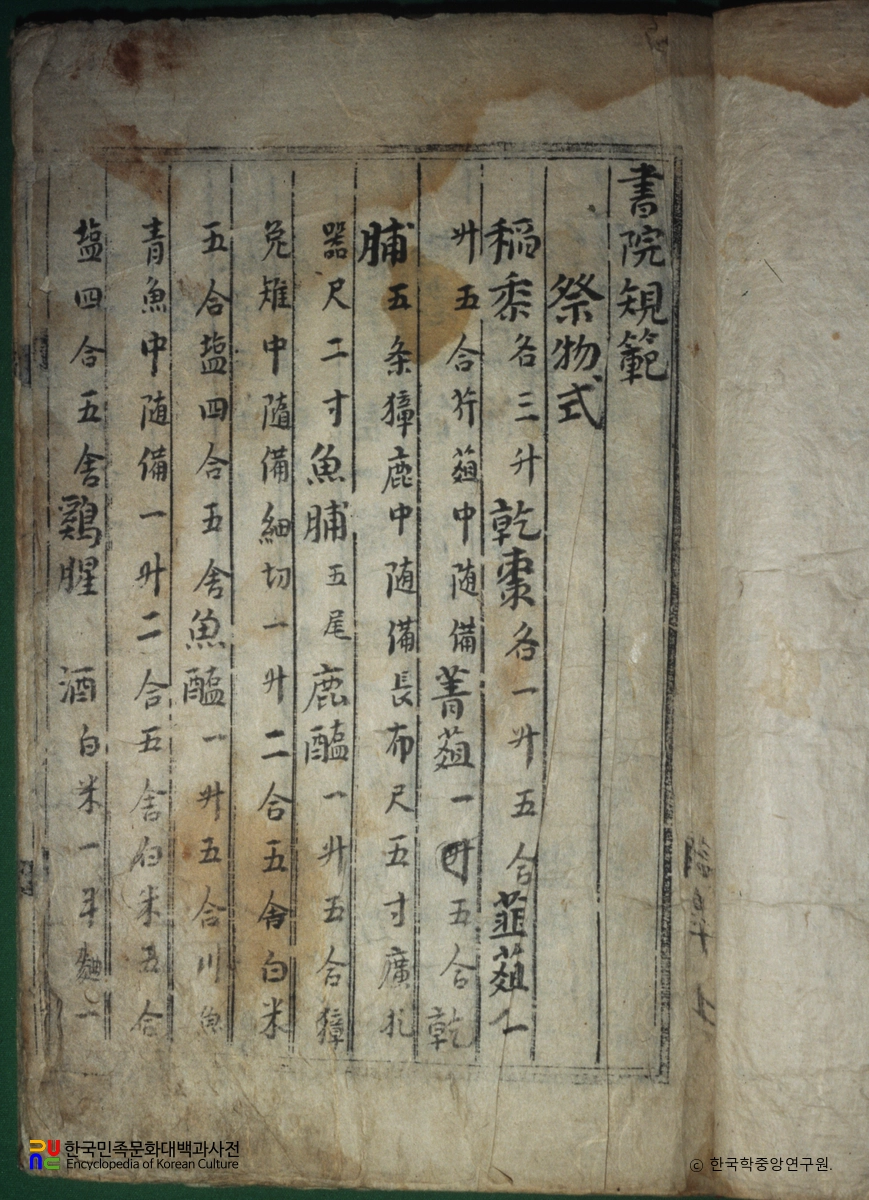 書院規範
祭物式
稻黍各三升乾棗各一升五合韮菹一
升五合芹菹中随備菁菹一升五合乾
脯五条獐鹿中随備長布尺五寸廣
器尺二寸魚脯五尾鹿醢一升五合獐
免雉中隨備細切一升二合五舍白米
五合塩四合五舍魚醢一升五合川魚
青魚中随備一升二合五舍白米五合
塩四合五舍鷄腥 酒白米一斗麯二
한국민족문화대백과사전
Encyclopedia of Korean Culture
© 한국학중앙연구원.